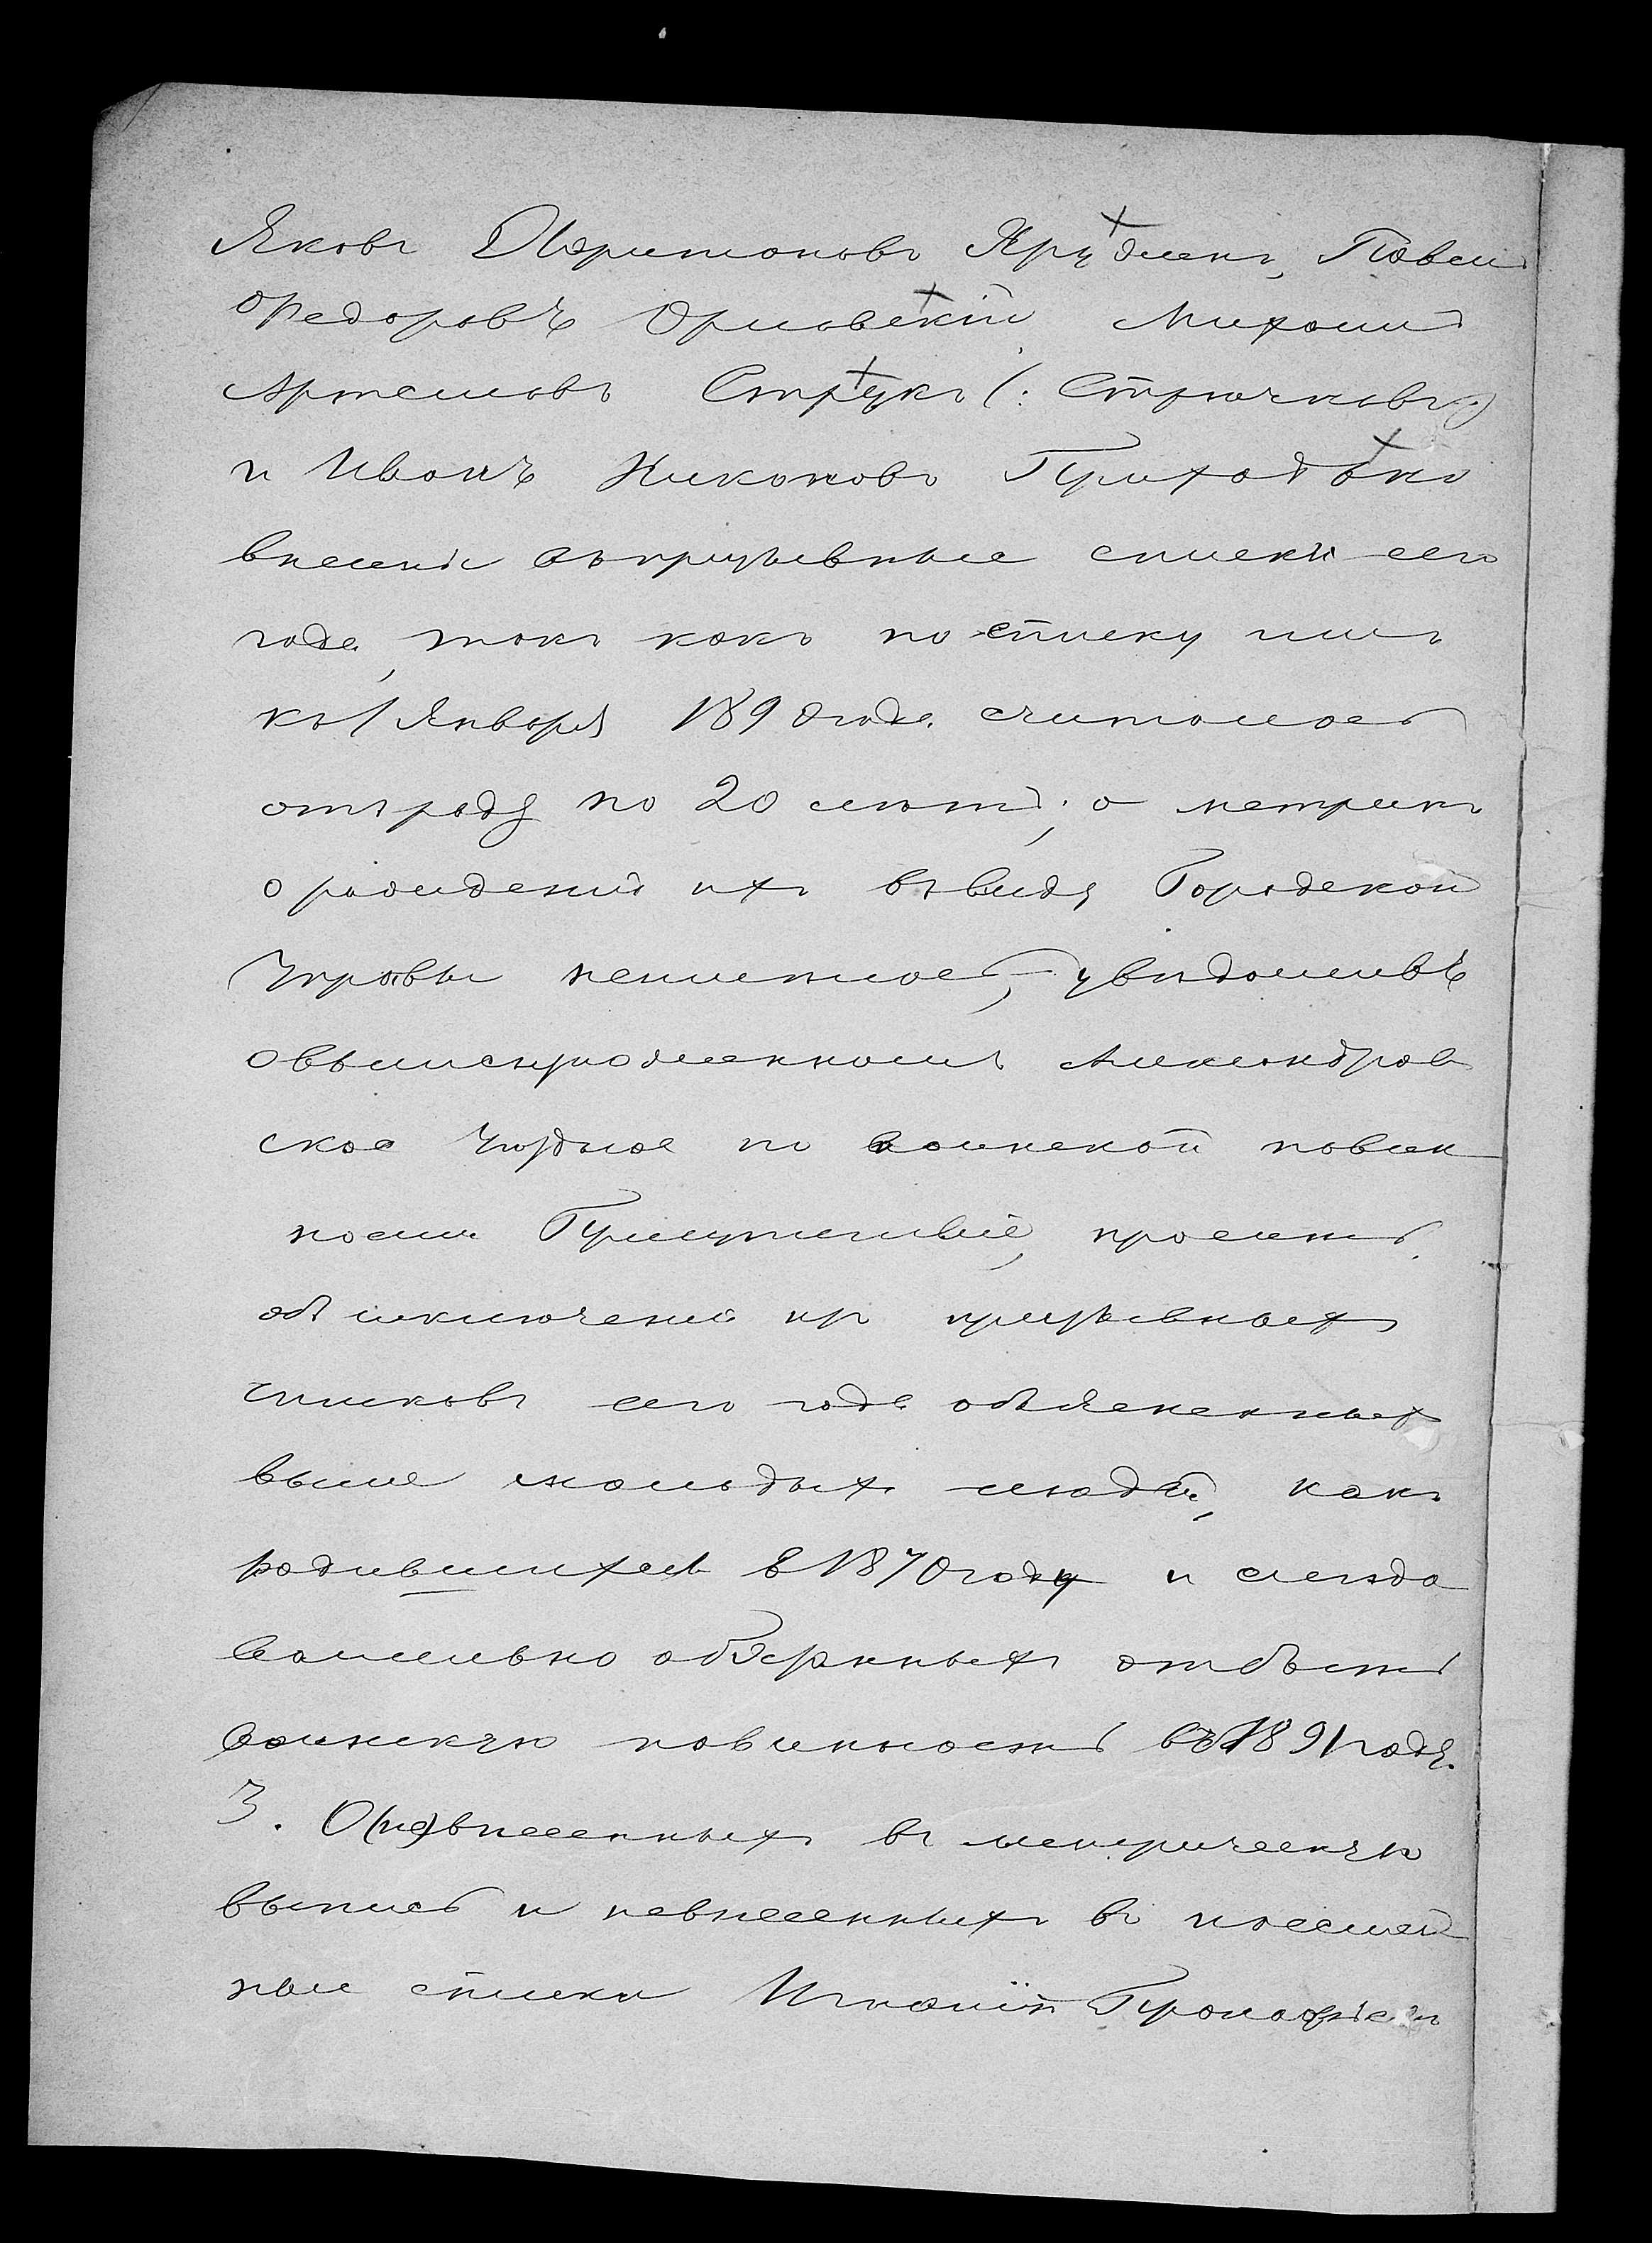 Яковъ Харитоновъ Яружекъ, Павелъ
Федоровъ Орловскій, Михаилъ
Артемовъ Стрүкъ (: Стрючковъ:)
и Иванъ Никоновъ Приходько
внесены въ призывные списки сего
года, такъ какъ по списку имъ
къ 1 Января 1890 года считалось
отъ роду по 20 лѣтъ; а метрикъ
о рожденіи ихъ въ виду Городской
Управы неимелось, – увѣдомивъ
о вышеизложенномъ Александров
ское Уѣздное по воинской повин
ности Присутствіе, проситъ
объ исключеніи изъ призывныхъ
списковъ сего года объясненныхъ
выше молодыхъ людей, какъ
родившихся в 1870 году и слѣдо
вательно обязанныхъ отбыть
воинскую повинность въ 1891 году.
3. О (не) внесенныхъ въ метрическую
выпись и невнесенныхъ въ посемей
ные списки Игнатій Прокофьевъ